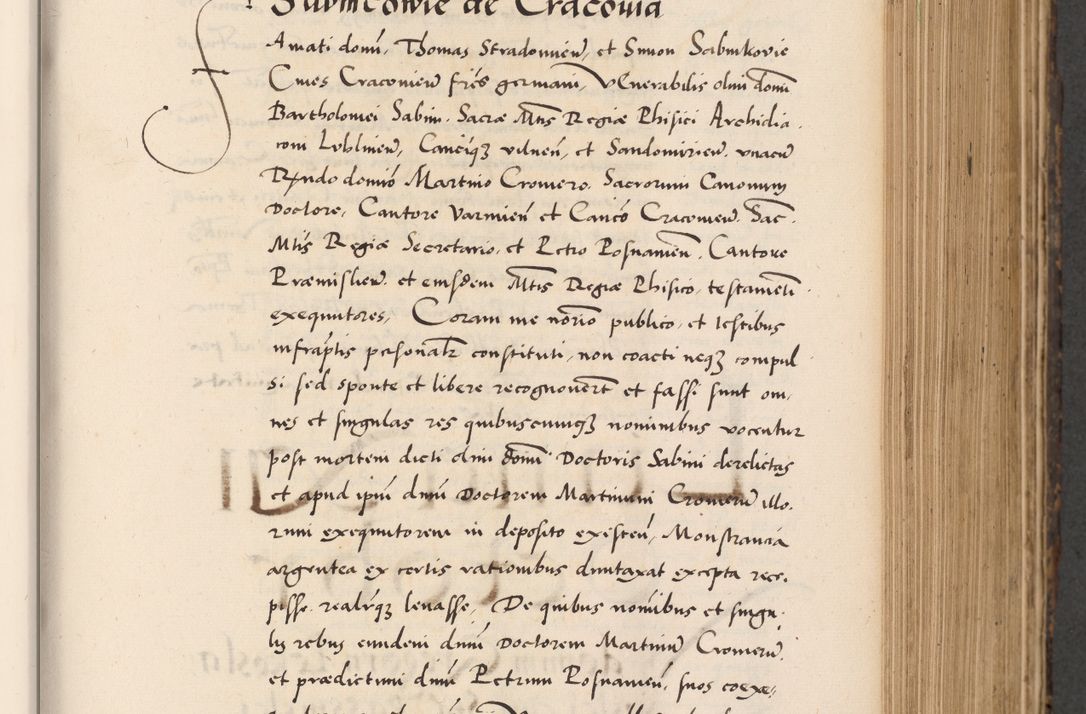 Sabincowie de Cracovia
Amati domi, Thomas Stradomień, et Simon Sabinkovie
Cives Cracovień frēs germani, vEnerabilis olim domi
Bartholomei Sabini. Sacræ Mtis Regiæ Phisici Archidia,
coni Lubliniēn, Canciq3 vilnēn, et Sandomirień. vnacū
Rndo domio Martino Cromero. Sacrorum Canonum
Doctore, Cantore Varmiēn et Canco Cracovień. Sac.
Mtis Regiæ Secretario, et Petro Posnanień. Cantore
Præmisliēn. et eiusdem Mtis Regiæ Phisico, testamēti
exequutores, Coram me norio publico, et testibus
infraptis psonalr constituti, non coacti neq3 compul
si sed sponte et libere recognovert et fassi sunt om,
nes et singulas res quibuscumq3 nominibus vocentur
post mortem dicti olim domi Doctoris Sabini derelictas
et apud ipm dnm Doctorem Martinum Cromerū illo,
rum exequutorem in deposito existen, Monstrancia
argentea ex certis rationibus duntaxat excepta rece,
pisse, realrq3 levasse, De quibus nomibus et singu,
lis rebus eundem dnm Doctorem Martinū Cromerū,
et prædictum dnm Petrum Posnaniēn, suos coexe,